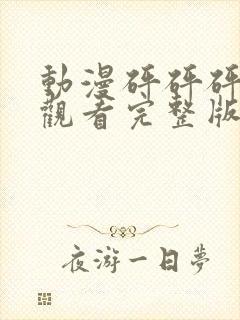 動漫砰砰砰
觀看完整版
夜游一日夢